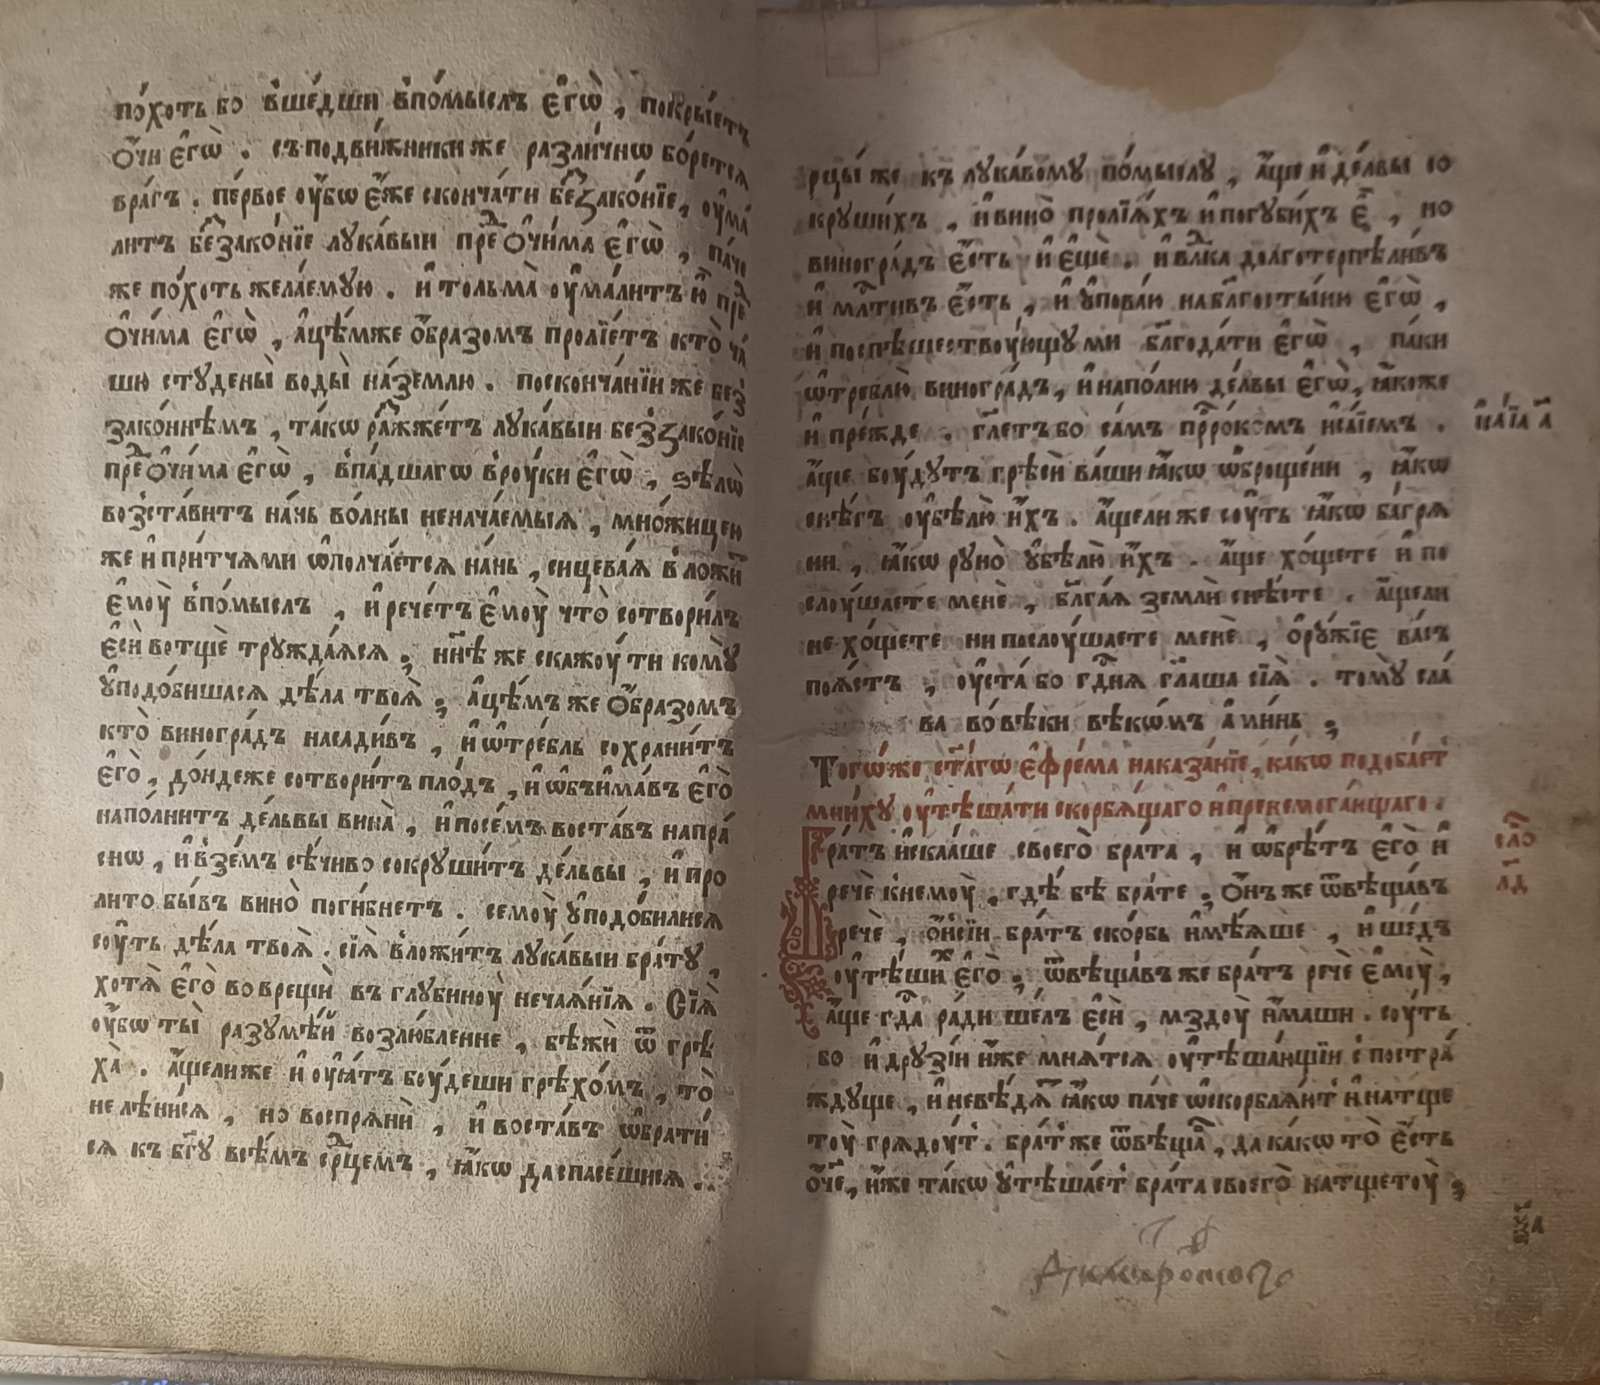 по́хоть бо в̾ше́дши в̾по́мыслъ є҆гѡ̀ , покры́етъ
ѻ҆́чи є҆гѡ̀ . съподви́жники же разли́чнѡ бо́рется
вра́гъ . пе́рвое оу҆́бѡ є҆́же сконча́ти беꙁ̾зако́нїе , оу҆ма́
литъ беꙁ̾зако́нїе лука́выи преⷣ ѻ҆чи́ма є҆гѡ̀ , па́че
же по́хоть жела́емꙋю . и҆ тольма̀ оу҆ма́литъ ю҆̀ преⷣ
ѻ҆чи́ма є҆гѡ̀ , а҆цѣ́мже ѻ҆́бразомъ пролїе́тъ кто̀ ча́
шю стꙋдены̀ воды̀ на́землю . посконча́нїи же беꙁ̾
зако́ннѣмъ , та́кѡ раж̾же́тъ лꙋка́выи беꙁ̾зако́нїе
преⷣ ѻ҆чи́ма є҆гѡ̀ , в̾па́дшагѡ в̾рꙋ́ки є҆гѡ̀ , ѕѣлѡ̀
воз̾ста́витъ на́нь во́лны неначаемыꙗ , мно́жицею
же и҆ при́тчѧми ѡ҆полча́етсѧ на́нь , сицева́ѧ в̾ложи́ⷮ
є҆моу̀ в̾по́мыслъ , и҆ рече́тъ є҆моу̀ что̀ сотвори́лъ
є҆сѝ вотщѐ трꙋжда́ѧсѧ ; нн҃ѣ же скажоу́ ти комꙋ̀
ᲂу҆подо́бишасѧ дѣ́ла твоѧ̀ ; а҆цѣ́мъ же ѻ҆́бразомъ
кто̀ виногра́дъ насади́въ , и҆ ѡ҆тре́бль сохрани́тъ
є҆го̀ , до́ндеже сотвори́тъ пло́дъ , и҆ ѡ҆бъи҆ма́въ є҆го̀
напо́лнитъ де́львы вина̀ , и҆ посе́мъ воста́въ напра́
снѡ , и҆ в̾зе́мъ сѣ́чиво сокрꙋши́тъ де́львы , и҆ про
лито бы́въ вино̀ поги́бнетъ . семоу̀ ᲂу҆подо́билисѧ
соу́ть дѣ́ла твоѧ̀ . сїѧ̀ в̾ложи́тъ лꙋка́выи бра́тꙋ ,
хотѧ̀ є҆го̀ воврещѝ въ глꙋбиноу̀ неча́ѧнїѧ . Сїѧ̀
оу҆́бѡ ты̀ разꙋмѣ́й возлю́бленне , бѣжѝ ѿ грѣ
ха̀ . а҆́щелиже и҆ оу҆ѧ́тъ боу́деши грѣхо́мъ , то̀
не лѣни́сѧ , но воспрѧнѝ , и҆ воста́въ ѡ҆брати́
сѧ къ бг҃ꙋ всѣ́мъ срⷣцемъ , ꙗ҆́кѡ да спасе́шисѧ .
рцы́ же къ лꙋка́вомꙋ по́мыслꙋ , а҆́ще и҆ де́лвы со
крꙋши́хъ , и҆ вино̀ пролїѧ́хъ и҆ погꙋби́хъ є҆̀ , но
виногра́дъ є҆́сть и҆ є҆щѐ . и҆ влⷣка долготерпѣли́въ
и҆ млⷭ҇тивъ є҆́сть , и҆ ᲂу҆пова́ю на бл҃гостыню є҆гѡ̀ ,
и҆ поспѣшествоу́ющꙋ ми бл҃года́ти є҆гѡ̀ , па́ки
ѡ҆треблю̀ виногра́дъ , и҆ напо́лню де́лвы є҆гѡ̀ , ꙗ҆́коже
и҆ пре́жде . гл҃етъ бо са́мъ прⷪ҇рокомъ и҆са́їемъ .
и҆са́їа а҃
а҆́ще боу́дꙋтъ грѣсѝ ва́ши ꙗ҆́кѡ ѡ҆броще́ни , ꙗ҆́кѡ
снѣ́гъ оу҆бѣлю̀ и҆́хъ . а҆́щели же соу́ть ꙗ҆́кѡ ба́грѧ
ни , ꙗ҆́кѡ рꙋно̀ ᲂу҆бѣлю̀ и҆́хъ . а҆́ще хо́щете и҆ по
слоу́шаете менѐ , бл҃га́ѧ землѝ снѣ́сте . а҆́щели
не хо́щете ни послоу́шаете менѐ , ѻ҆рꙋ́жїе ва́съ
поѧ́стъ , оу҆ста́ бо гдⷭ҇нѧ гл҃аша сїѧ̀ . томꙋ̀ сла́
ва во́вѣки вѣкѡ́мъ а҆ми́нь ,
Тогѡ́же ст҃а́гѡ є҆фре́ма наказа́нїе , ка́кѡ подоба́еⷮ
мни́хꙋ оу҆тѣша́ти скорбѧ́щаго и҆ пренемога́ющаго .
сло́
л҃д
Бра́тъ и҆ска́аше своего̀ бра́та , и҆ ѡ҆брѣ́тъ є҆го̀ и҆
речѐ к̾немоу̀ , гдѣ̀ бѣ̀ бра́те ; ѻ҆́нъ же ѿвѣща́въ
речѐ , ѻ҆́н̾сїи бра́тъ ско́рбь и҆мѣ́ѧше , и҆ ше́дъ
оу҆тѣ́шихъ є҆го̀ ; ѿвѣща́въ же бра́тъ речѐ є҆моу̀ ,
а҆́ще гдⷭ҇а ра́ди ше́лъ є҆сѝ , мздоу̀ и҆́маши . соу́ть
бо и҆ дрꙋзі́и и҆́же мнѧ́тсѧ оу҆тѣша́ющїи с̾ постра́
ждꙋще , и҆ невѣ́дѧⷮ ꙗ҆́кѡ па́че ѡ҆скорблѧ́ютъ и҆ на тще
тоу̀ грѧдоу́тъ . бра́тъ же ѿвѣща̀ , да ка́кѡ то̀ є҆́сть
ѻ҆́ч҃е , и҆́же та́кѡ ᲂу҆тѣша́етъ бра́та своего̀ на тщетоу̀ ;